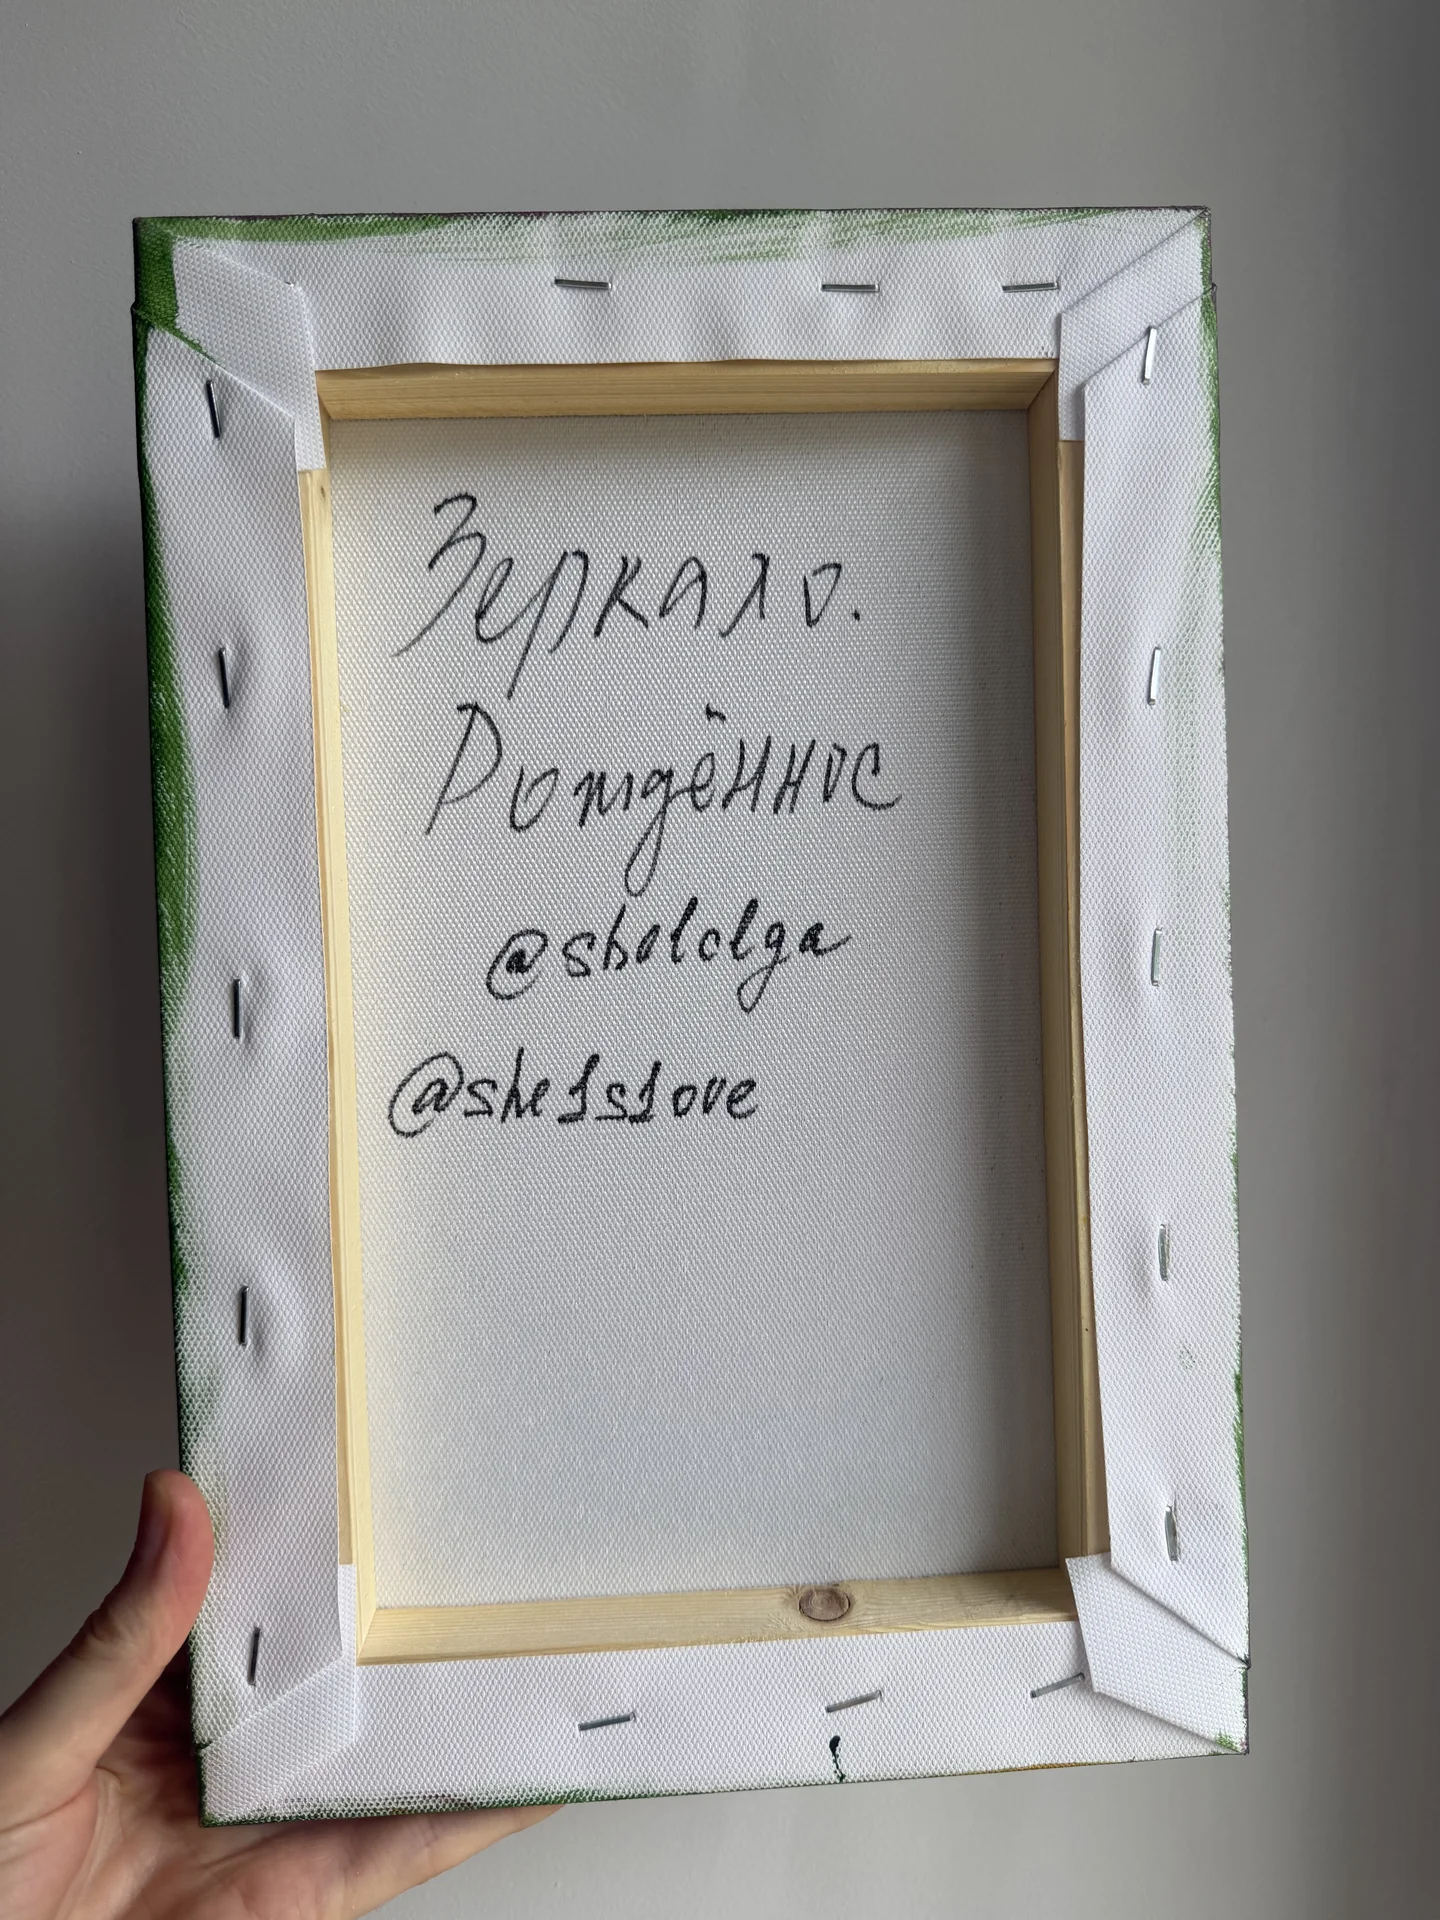 Зеркало.
Рождённое
@shelolga
@she1s1ove